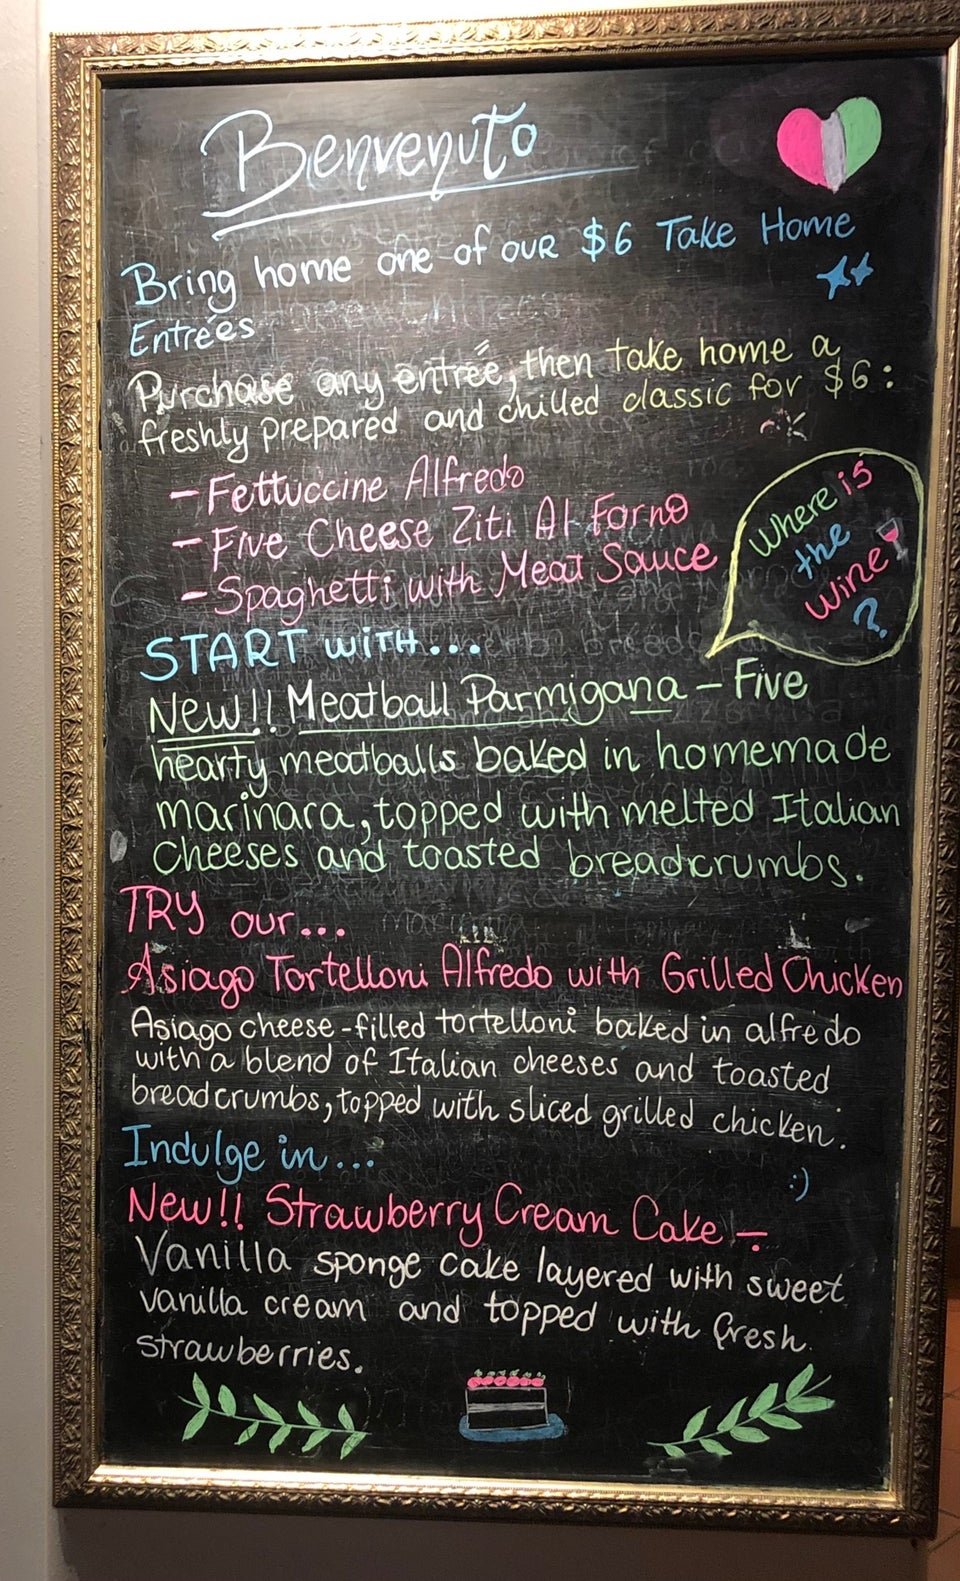 Benvenuto
Bring home one of our $6 Take Home
Entrées
Purchase any entrée, then take home a
freshly prepared and chilled classic for $6:
- Fettuccine Alfredo
- Five Cheese Ziti Al Forno
- Spaghetti with Meat Sauce
Where is
the
wine
?
START with...
New!! Meatball Parmigana - Five
hearty meatballs baked in homemade
marinara, topped with melted Italian
Cheeses and toasted breadcrumbs.
TRY our...
Asiago Tortelloni Alfredo with Grilled Chicken
Asiago cheese-filled tortelloni baked in alfredo
with a blend of Italian cheeses and toasted
breadcrumbs, topped with sliced grilled chicken.
Indulge in...
:)
New!! Strawberry Cream Cake -
Vanilla sponge cake layered with sweet
vanilla cream and topped with fresh
strawberries.